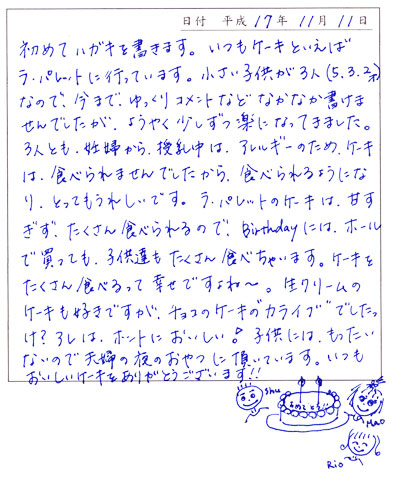 日付 平成 17年 11月 11日
初めてハガキを書きます。いつもケーキといえば
ラ・パレットに行っています。小さい子供が3人(5.3.2才)
なので、今まで、ゆっくりコメントなどなかなか書けま
せんでしたが、ようやく少しずつ楽になってきました。
3人とも、妊婦から、授乳中は、アレルギーのため、ケーキ
は、食べられませんでしたから、食べられるようにな
り、とってもうれしいです。ラ・パレットのケーキは、甘す
ぎず、たくさん食べられるので、Birthdayには、ホール
で買っても、子供達もたくさん食べちゃいます。ケーキを
たくさん食べるって幸せですよね〜。生クリームの
ケーキも好きですが、チョコのケーキの"カライブ"でしたっ
け?アレは、ホントにおいしい!子供には、もったい
ないので夫婦の夜のおやつに頂いています。いつも
おいしいケーキをありがとうございます!!
Shu
おめでとう!!
Mao
Rio